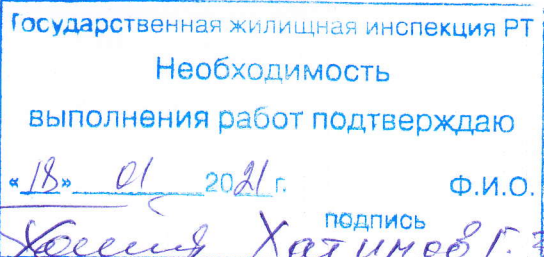 Государственная жилищная инспекция РТ
Необходимость
выполнения работ подтверждаю
«18» 01 2021 г. Ф.И.О.
подпись
Хатимов Г.